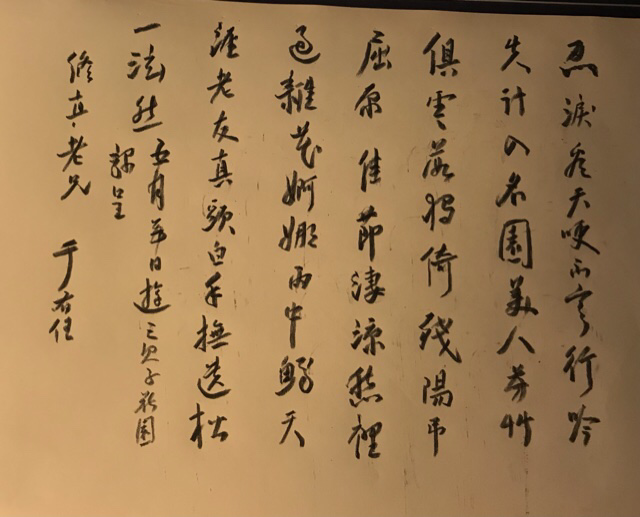 忍淚看天哽不言行吟
失計入名園美人芳艸
俱零落獨倚殘陽弔
屈原佳節淒涼愁裡
過雜花婀娜雨中鮮天
涯老友真頭白手撫遺松
一泫然五月五日遊三貝子花園
錄呈
修真老兄 于右任